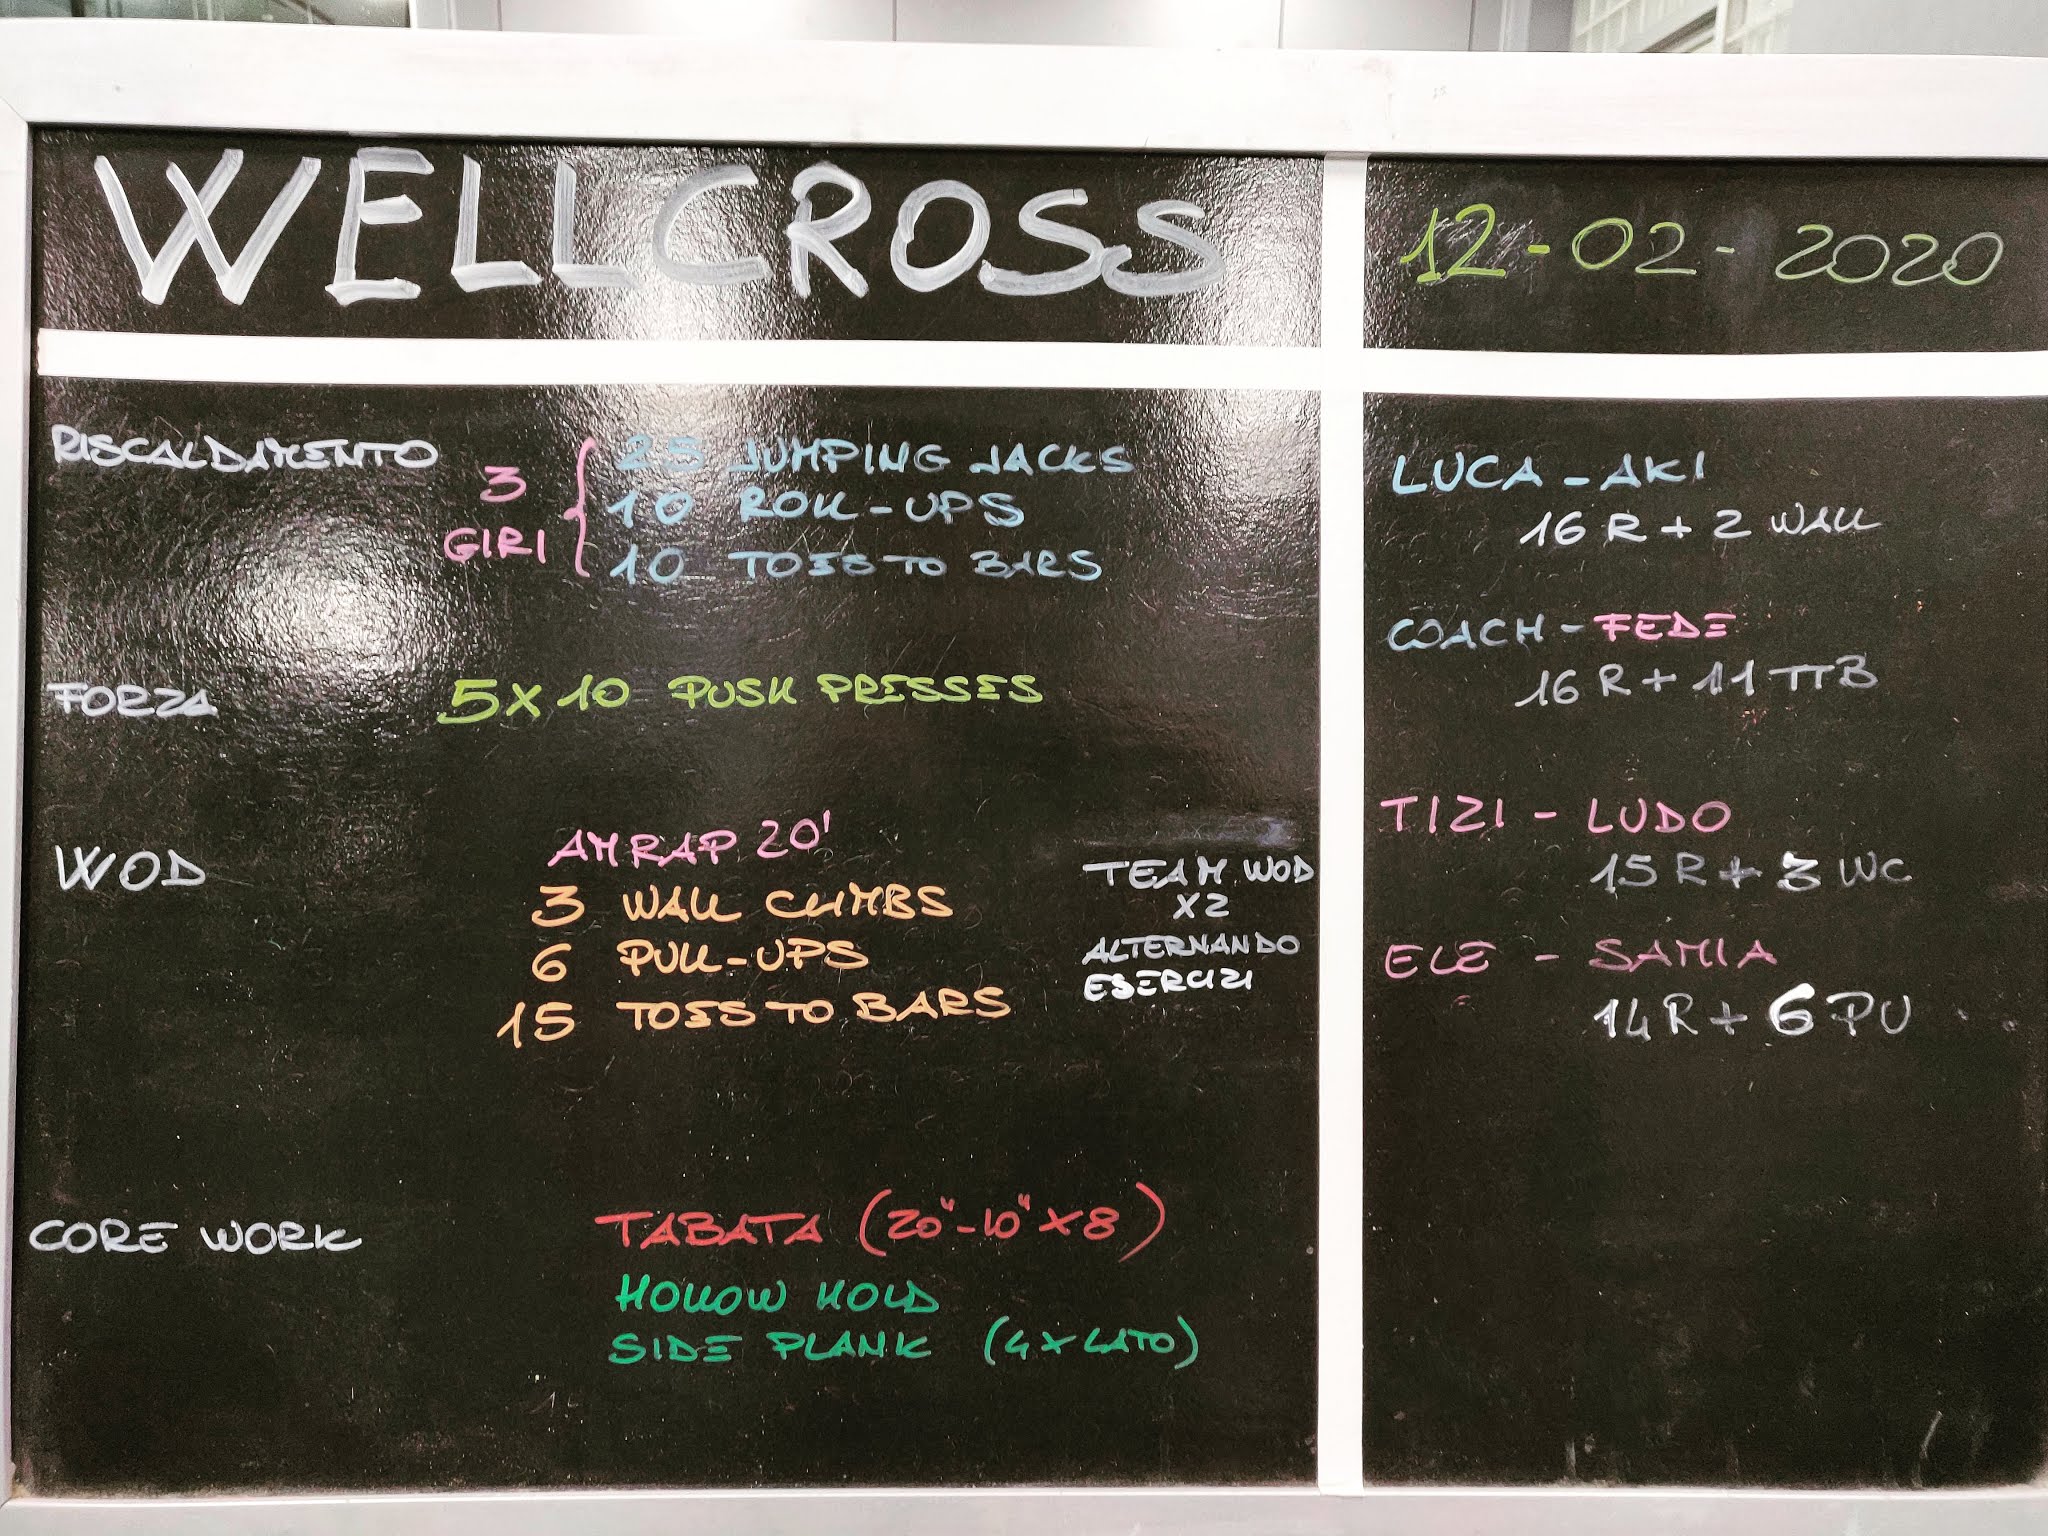 WELLCROSS
12-02-2020
RISCALDAMENTO
3 GIRI
25 JUMPING JACKS
10 ROLL-UPS
10 TOES TO BARS
FORZA
5X10 PUSH PRESSES
WOD
AMRAP 20'
3 WALL CLIMBS
6 PULL-UPS
15 TOES TO BARS
TEAM WOD
X2
ALTERNANDO
ESERCIZI
CORE WORK
TABATA (20"-10" X 8)
HOLLOW HOLD
SIDE PLANK (4 X LATO)
LUCA - AKI
16 R + 2 WALL
COACH - FEDE
16 R + 11 TTB
TIZI - LUDO
15 R + 3 WC
ELE - SAMIA
14 R + 6 PU